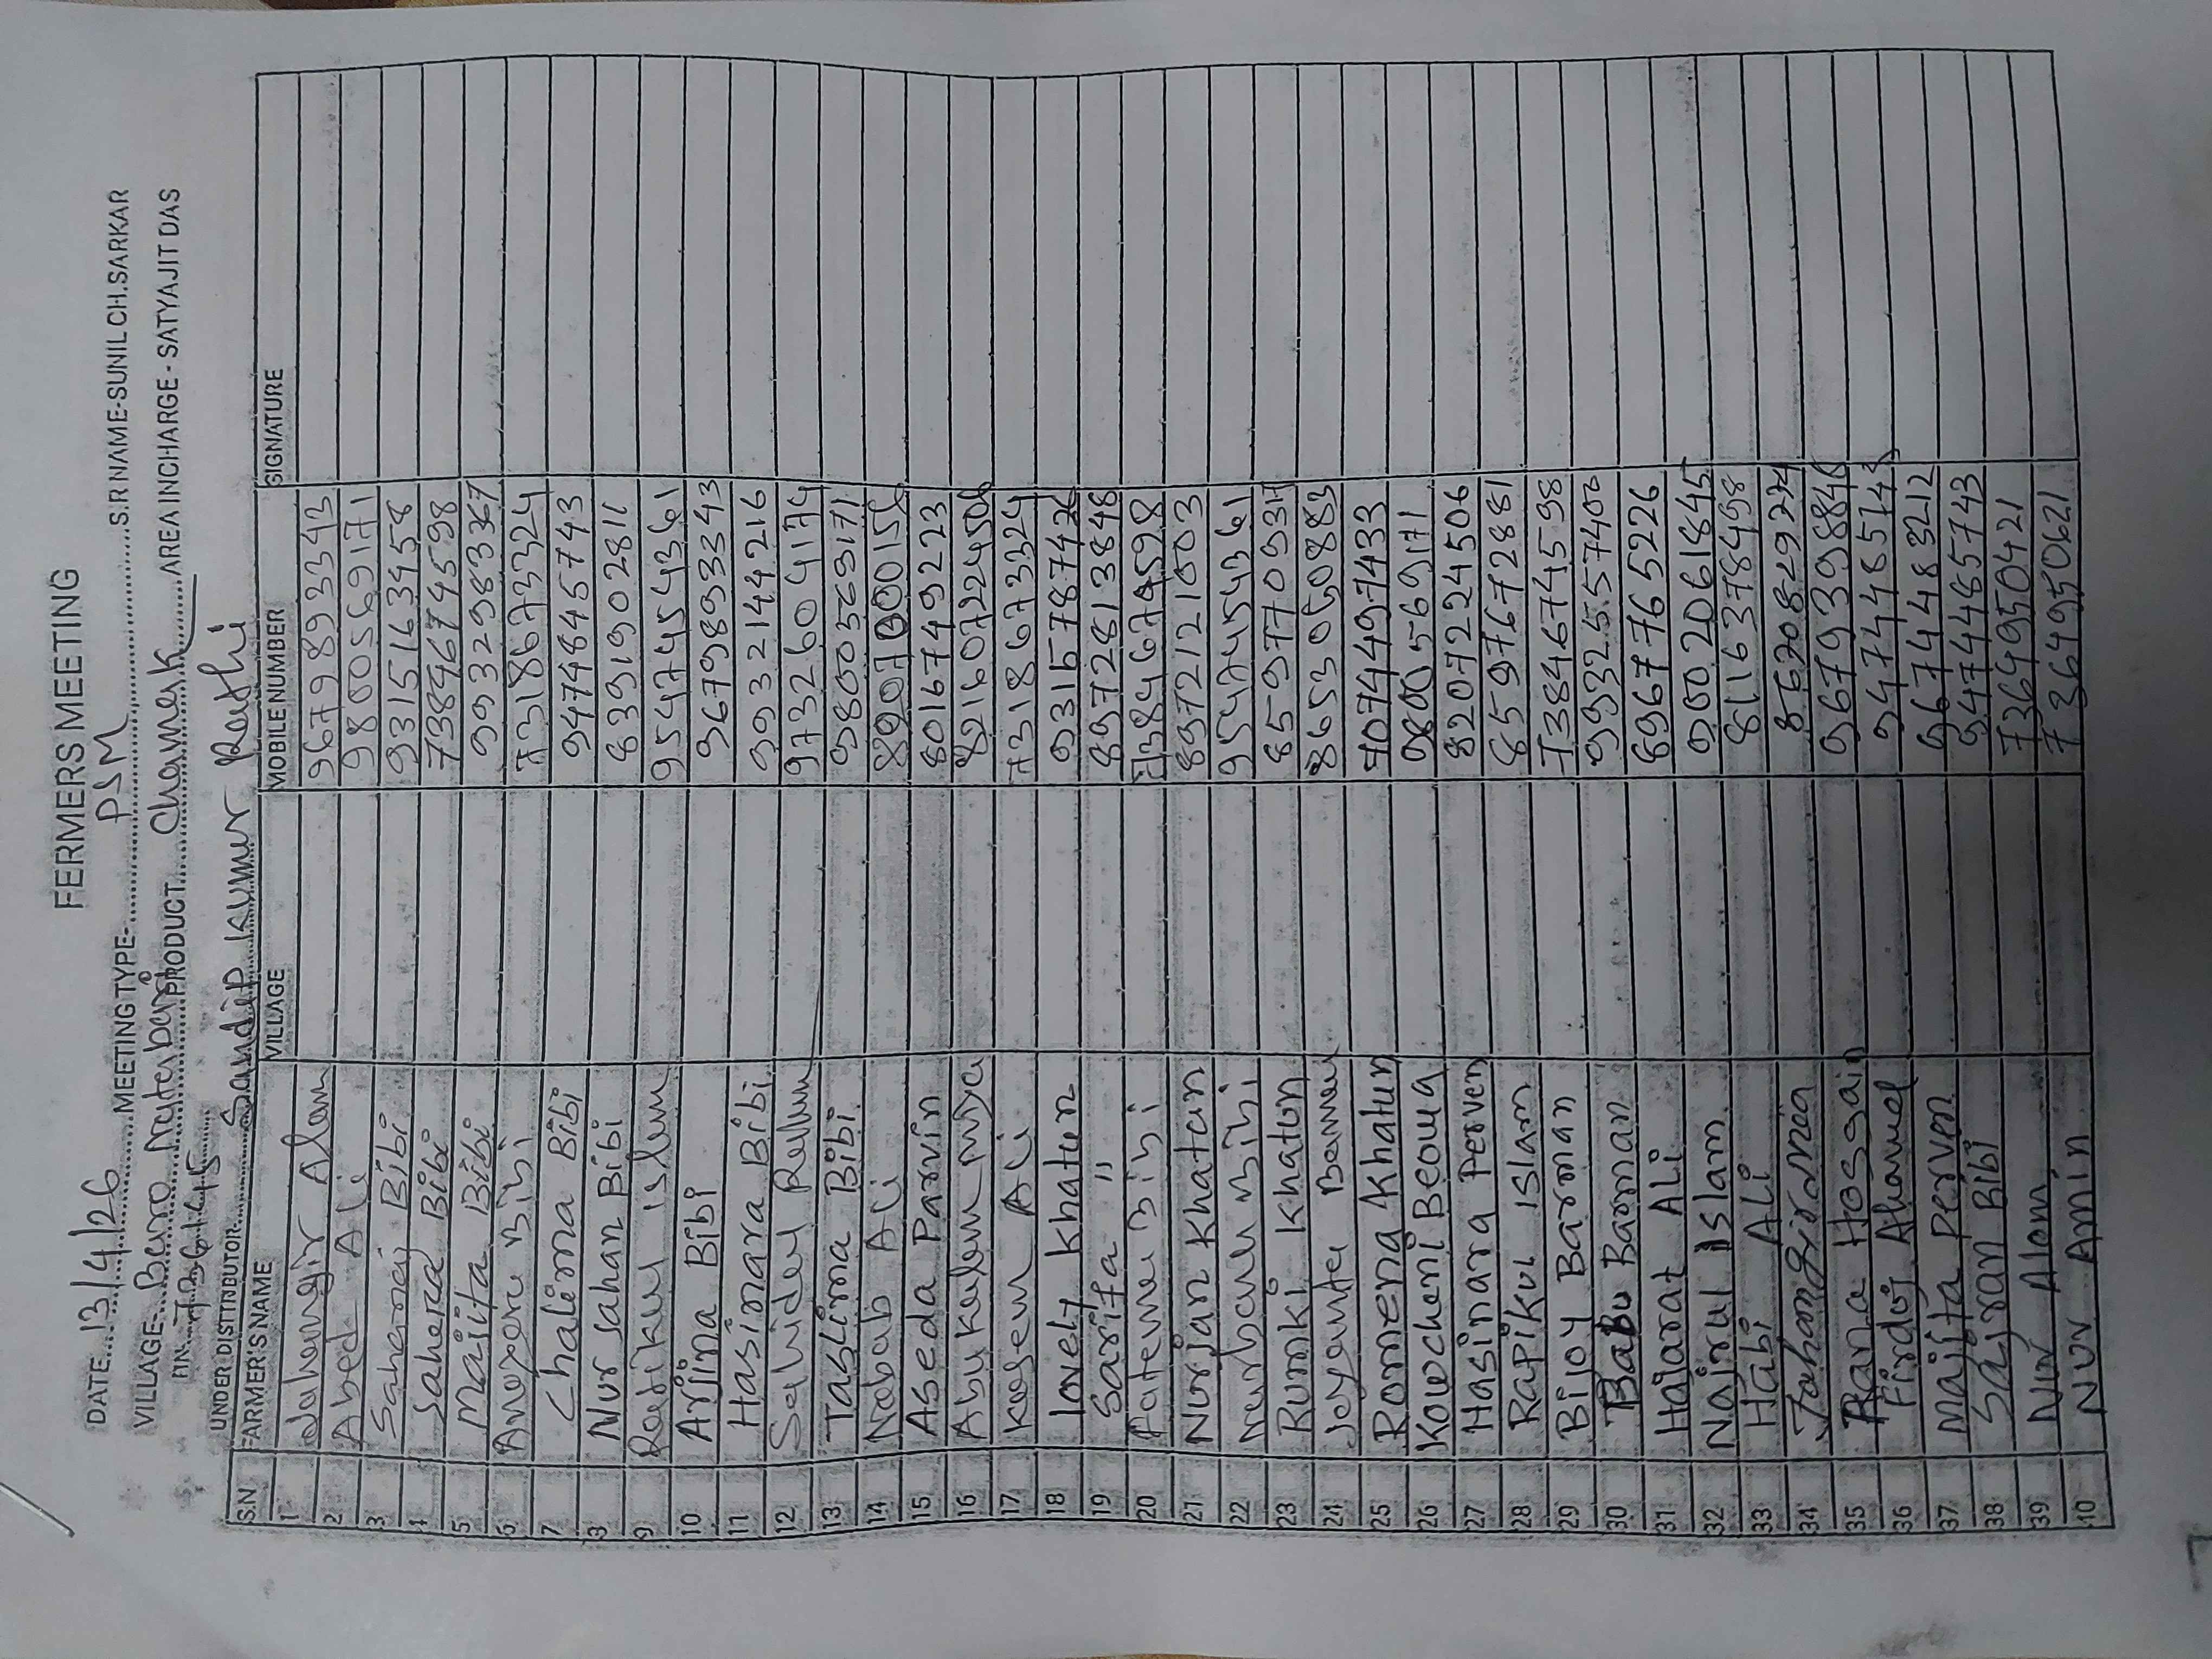 FERMERS MEETING
DATE...13/4/26......MEETING TYPE-......PSM......S.R NAME-SUNIL.CH.SARKAR
VILLAGE-Baro Naterbari PRODUCT....Chamak....AREA INCHARGE - SATYAJIT DAS
PIN-736145
UNDER DISTTNBUTOR...Sandip kumer Rathi
S.N. FARMER'S NAME VILLAGE MOBILE NUMBER SIGNATURE
1 Jahangir Alam 9679893343
2 Abed Ali 9800569171
3 Sahenaj Bibi 9315163458
4 Sahera Bibi 7384674598
5 Majita Bibi 9932983367
6 Anogera Bibi 7318673324
7 Chalima Bibi 9474845743
8 Nur Jahan Bibi 8391902811
9 Rafikul islam 9547454361
10 Arjina Bibi 9679893343
11 Hasinara Bibi 9932144216
12 Sahidul Rahman 9732604174
13 Taslima Bibi 9800569171
14 Nabab Ali
15 Aseda Parvin 8016749223
16 Abu kalam miya
17 kasem Ali 7318673324
18 lovely khatun 9315787426
19 Sarifa " 8972813848
20 Fatema Bibi
21 Nurjan Khatun 8972121003
22 Nurbanu Bibi 9547454361
23 Rumki Khatun
24 Joyanta Barman 8653050883
25 Romena Khatun 7074497433
26 Kowcheni Beoua 9800569171
27 Hasinara Perven 8207224506
28 Rapikul ISlam 8597672881
29 Bijoy Barman 7384674598
30 Babu Barman 9932557400
31 Hajarat Ali 8967765226
32 Najrul Islam 9002061845
33 Habi Ali 8116378498
34 Jahamgir Mia
35 Rana Hossain 9679398846
36 Firdoj Ahamed
37 Majita Perven 9674483212
38 Sajran Bibi 9474485743
39 Nur Alom 7364950421
40 Nur Amin 7364950621